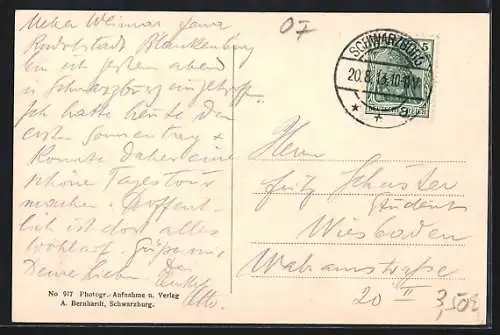 Ueber Weimar Jena
Rudolstadt Blankenburg
bin ich gestern abend
in Schwarzburg eingetroffen.
Ich hatte heute den
ersten Sonnentag &
konnte daher eine
schöne Tagestour
machen. Hoffent-
lich ist dort alles
wohlauf. Grüße mir
Deine lieben
Otto.
No 917 Photogr. Aufnahme u. Verlag
A. Bernhardt, Schwarzburg.
SCHWARZBURG
20.8.13.10-11V
* * a
5
DEUTSCHES REICH
Herrn
Fritz Schuster
Student
Wiesbaden
Walramstrasse
20 II
3,50E